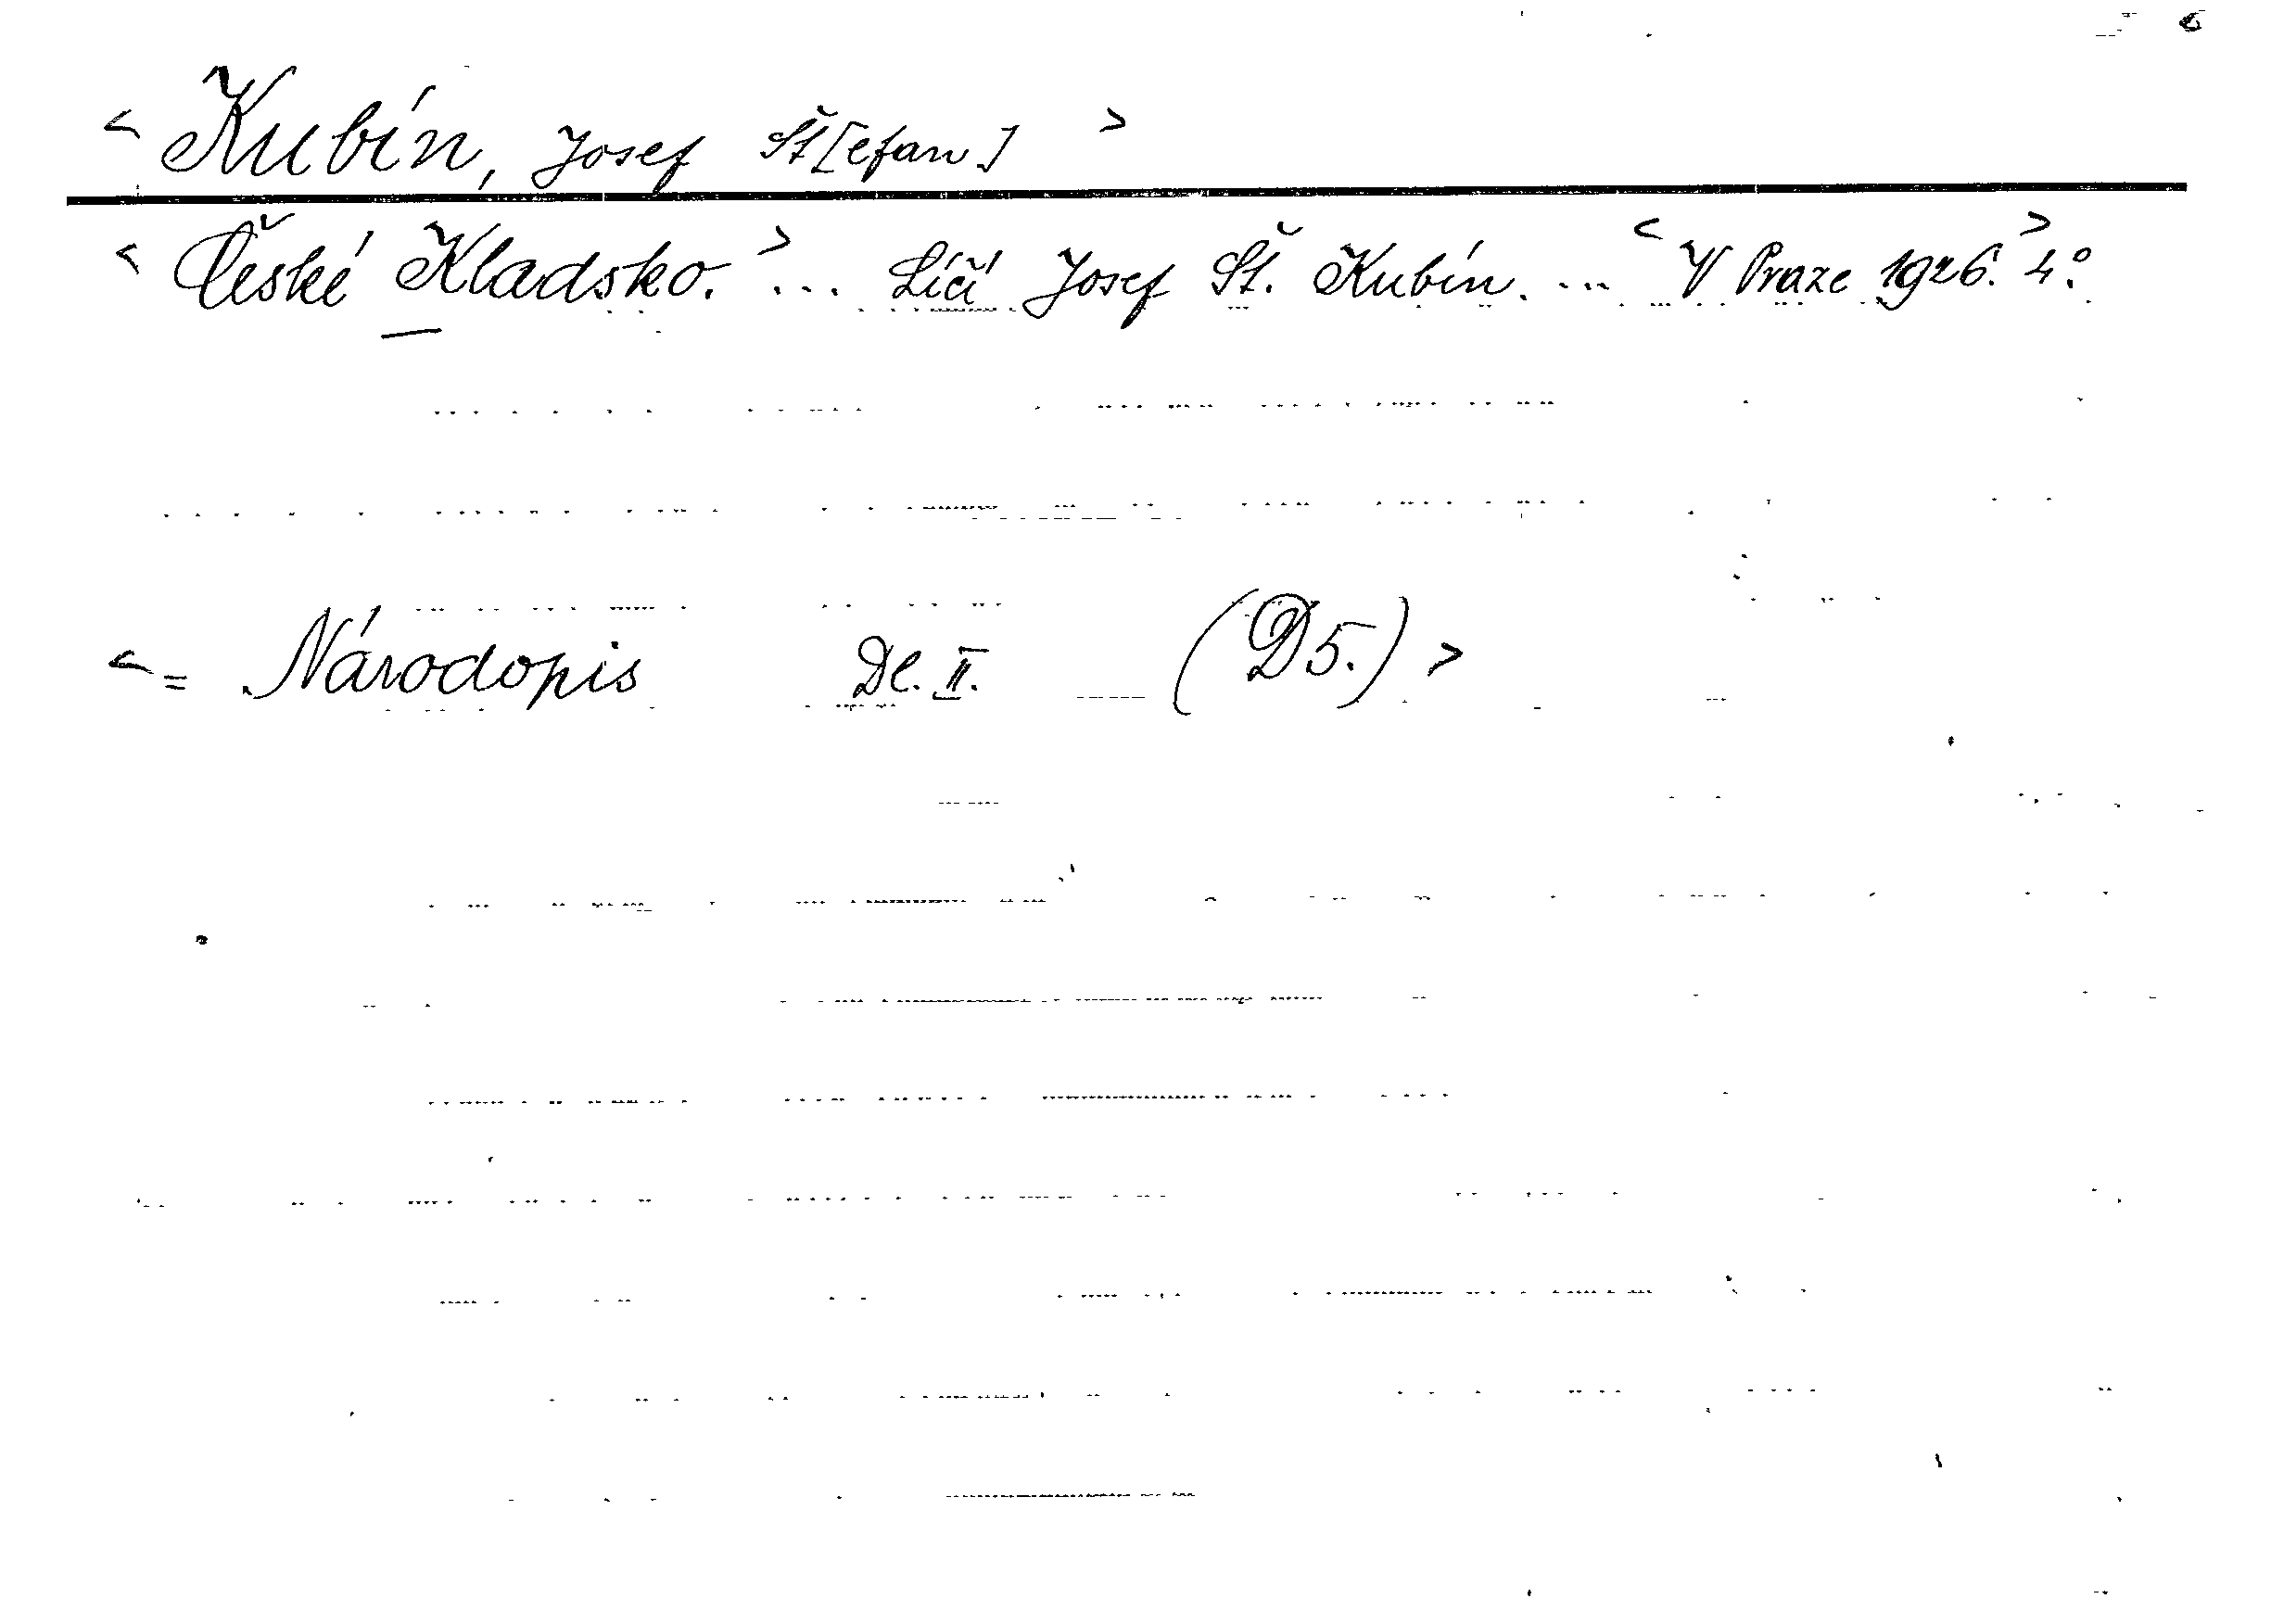 < Kubín, Josef Št[efan] >
< České Kladsko. > ... Líčí Josef Št. Kubín. ... < V Praze 1926. > 4.°
< = Národopis Dl. II. (D5.) >